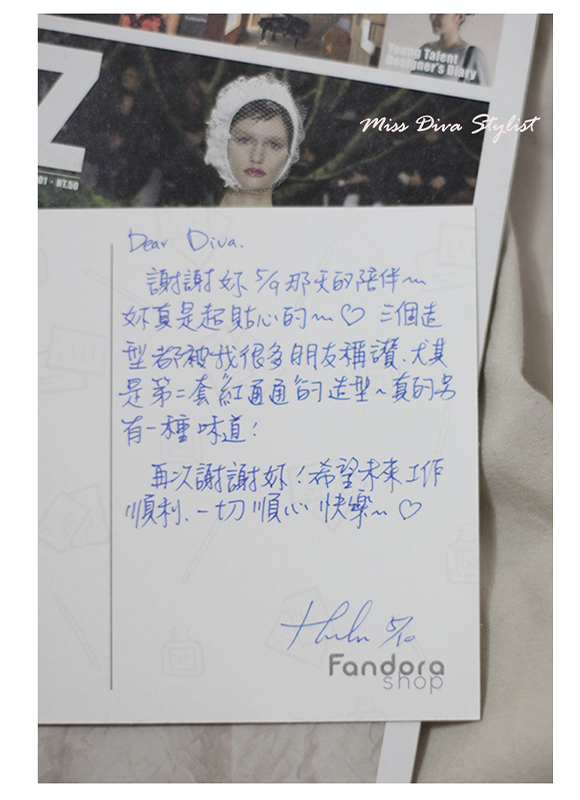 Young Talent
Designer's Diary
Miss Diva Stylist
Z
01 · NT.50
Dear Diva.
謝謝妳 5/9 那天的陪伴~
妳真是超貼心的~♡ 三個造
型都被我很多朋友稱讚、尤其
是第二套紅通通的造型~真的另
有一種味道!
再次謝謝妳!希望未來工作
順利、一切順心快樂~♡
5/10
Fandora
shop